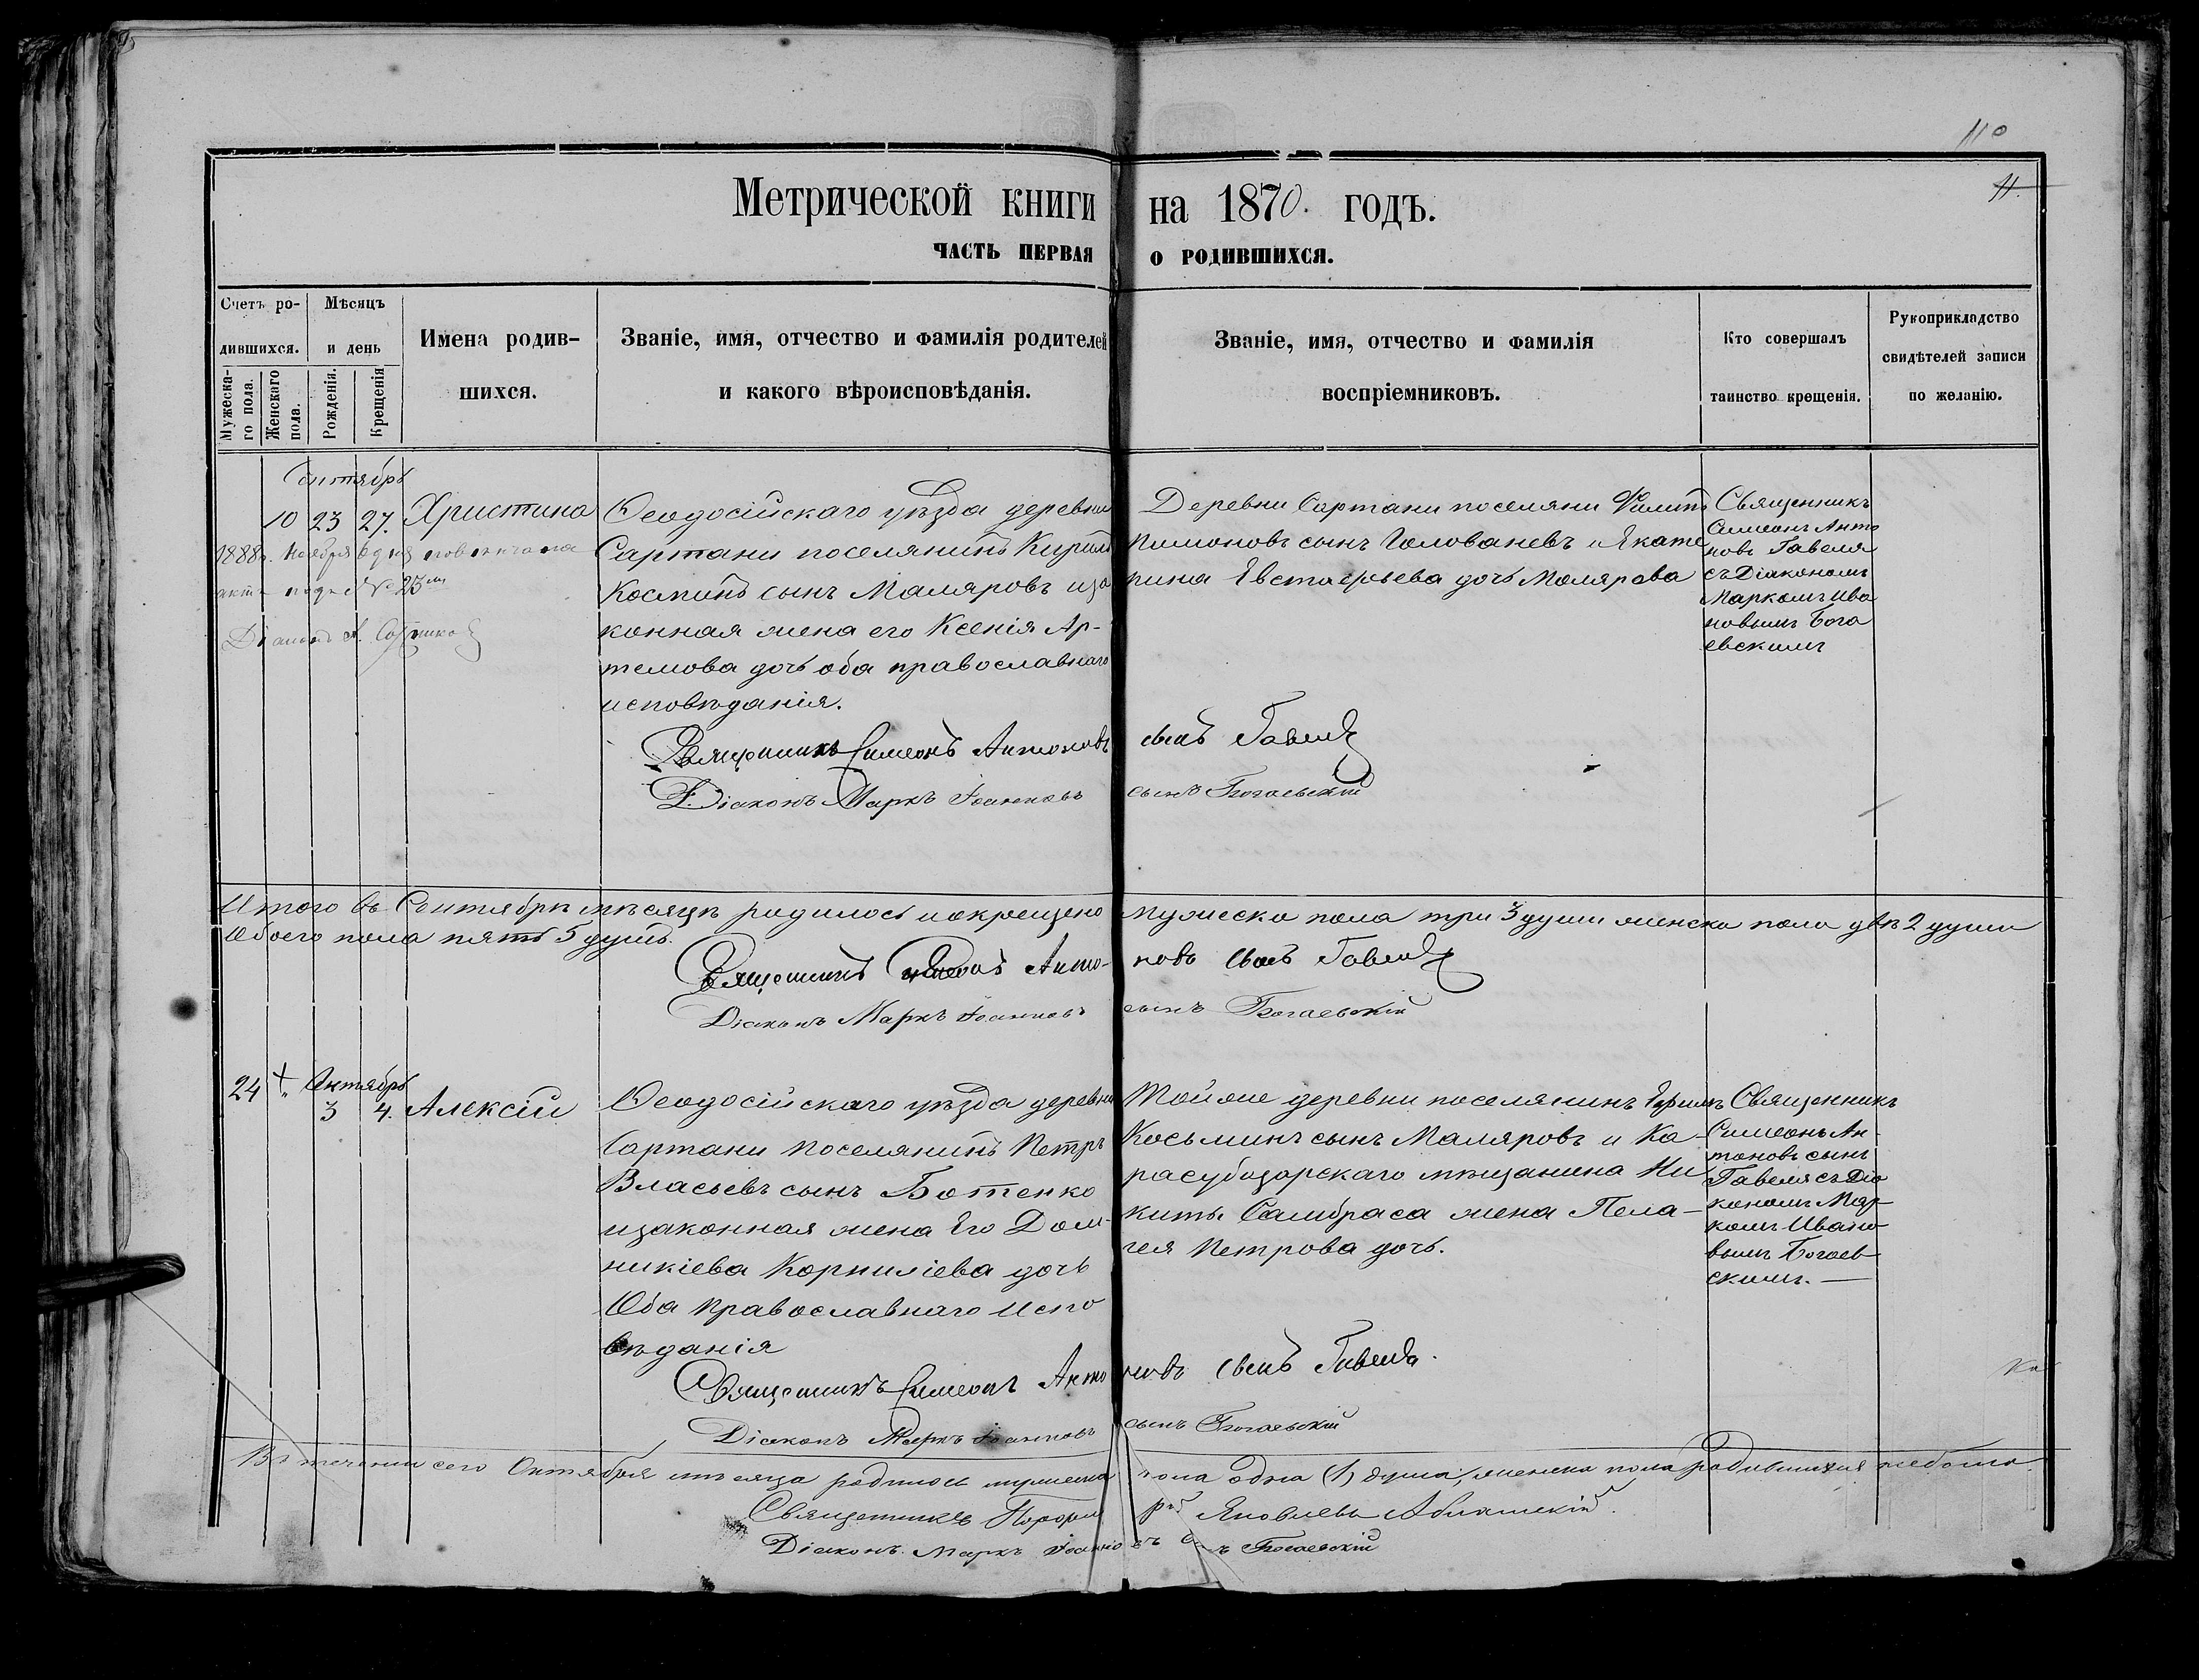 110
11.
Метрической книги на 1870. годъ.
ЧАСТЬ ПЕРВАЯ О РОДИВШИХСЯ.
Счетъ ро-
дившихся.
Мужеска-
го пола.
Женскаго
пола.
Мѣсяцъ
и день
Рожденія.
Крещенія
Имена родив-
шихся.
Званіе, имя, отчество и фамилія родителей
и какого вѣроисповѣданія.
Званіе, имя, отчество и фамилія
воспріемниковъ.
Кто совершалъ
таинство крещенія.
Рукоприкладство
свидѣтелей записи
по желанію.
Сентябрь
10 23 27. Христина
1888г. Ноября 6 дня повѣнчана
актъ подъ № 23мъ
Діаконъ А.
Ѳеодосійскаго уѣзда деревни
Сартани поселянинъ Кирилъ
Косминъ сынъ Маляровъ иза
конная жена его Ксенія Ар-
темова дочь оба православнаго
исповѣданія.
Деревни Сартани поселяни Филипъ
Пимоновъ сынъ Голованевъ и Екате
рина Евстафьева дочь Молярова
Священникъ
Симеонъ Анто
новъ Гавеля
съ Діакономъ
Маркомъ Ива
новымъ Бога
евскимъ
Священникъ Симеонъ Антоновъ сынъ Гавеля
Діаконъ Маркъ Іоанновъ сынъ Богаевскій
Итого въ Сентябрѣ мѣсяцѣ родилось и окрещено мужеска пола три 3 души женска пола двѣ 2 души
Обоего пола пять 5 душъ.
Священникъ Симеонъ Анто- новъ сынъ Гавеля
Діаконъ Маркъ Іоанновъ сынъ Богаевскій
Октябрь
24 " 3 4. Алексій
Ѳеодосійскаго уѣзда деревни
Сартани поселянинъ Петръ
Власьевъ сынъ Ботенко
изаконная жена Его Дом-
никіева Корниліева дочь
Оба православнаго испо
вѣданія
Тойже деревни поселянинъ Кирилъ
Косьминъ сынъ Маляровъ и Ка-
расубазарскаго мѣщанина Ни
киты Самбраса жена Пела-
гея Петрова дочь.
Священникъ
Симеонъ Ан-
тоновъ сынъ
Гавеля съ Діа
кономъ Мар-
комъ Ивано
вымъ Богаев
скимъ.
Священникъ Симеонъ Антоновъ сынъ Гавеля.
Діаконъ Маркъ Іоанновъ сынъ Богаевскій
Въ теченіи сего Октября мѣсяца родилось мужеска пола одна (1) душа, женска пола родившихся небыло.
Священникъ Порфирій Яковлевъ
Діаконъ Маркъ Богаевскій